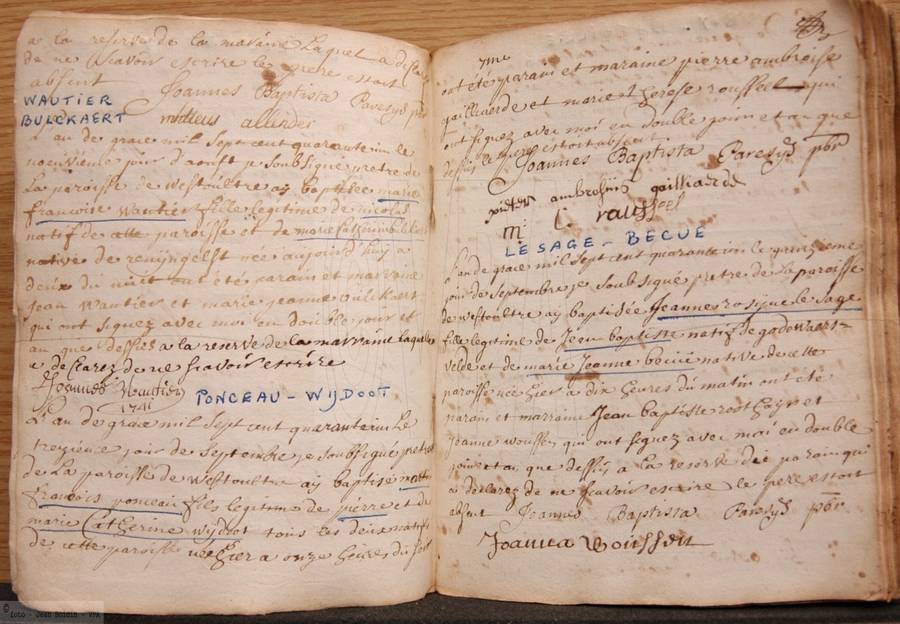 a la reserve de la maraine laquel a declarez
de ne scavoir escrire le pere estant
absent
Joannes Baptista Paresys pbr
WAUTIER
BULCKAERT
L'an de grace mil sept cent quarante un le
neuvieme jour d'aoust je soubsigné pretre de
la paroisse de Westoultre ay baptisée marie
francoise Wautier fille legitime de nicolas
natif de cette paroisse et de marie Catherine
native de renijngelst née aujourd'huy a
deux du nuit ont été parain et marraine
Jean Wautier et marie jeanne bulckaert
qui ont signez avec moi en double jour et
an que dessus a la reserve de la marraine laquelle
a declarez de ne scavoir escrire
Joannes Wautier
1741
PONCEAU - WIJDOOT
L'an de grace mil sept cent quarante un le
treizieme jour de septembre je soubsigné pretre
de la paroisse de Westoultre ay baptisé
francois ponceau fils legitime de pierre et de
marie Catherine wijdoot tous les deux natifs
de cette paroisse né hier a onze heures du soir
ont été parain et maraine pierre ambroise
gailliaerde et marie therese roussel qui
ont signez avec moi en double jour et an que
dessus le pere estoit absent
Joannes Baptista Paresys pbr
pieter ambrosius gailliaerde
m: l roussel
LESAGE - BECUE
L'an de grace mil sept cent quarante un le quinzieme
jour de septembre je soubsigné pretre de la paroisse
de westoultre ay baptisée Jeanne rosique le Sage
fille legitime de Jean baptiste natif de godewaers-
velde et de marie Jeanne becue native de cette
paroisse née hier a dix heures du matin ont été
parain et marraine Jean baptiste et
Jeanne woussen qui ont signez avec moi en double
jour et an que dessus a la reserve du parain qui
a declarez de ne scavoir escrire le pere estoit
absent Joannes Baptista Paresys pbr
Joanna Woussen
foto - Jean Boidin - VVF